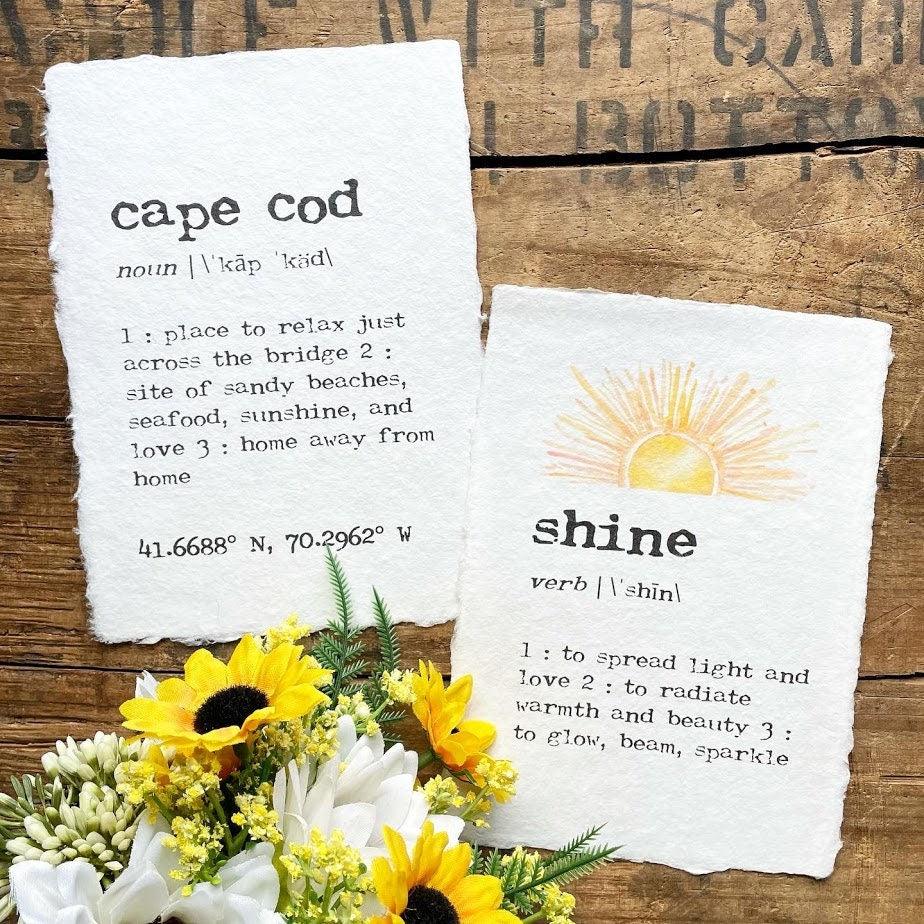 WITH CAR
BOTTO
cape cod
noun |\ˈkāp ˈkäd\
1 : place to relax just
across the bridge 2 :
site of sandy beaches,
seafood, sunshine, and
love 3 : home away from
home
41.6688° N, 70.2962° W
shine
verb |\ˈshīn\
1 : to spread light and
love 2 : to radiate
warmth and beauty 3 :
to glow, beam, sparkle